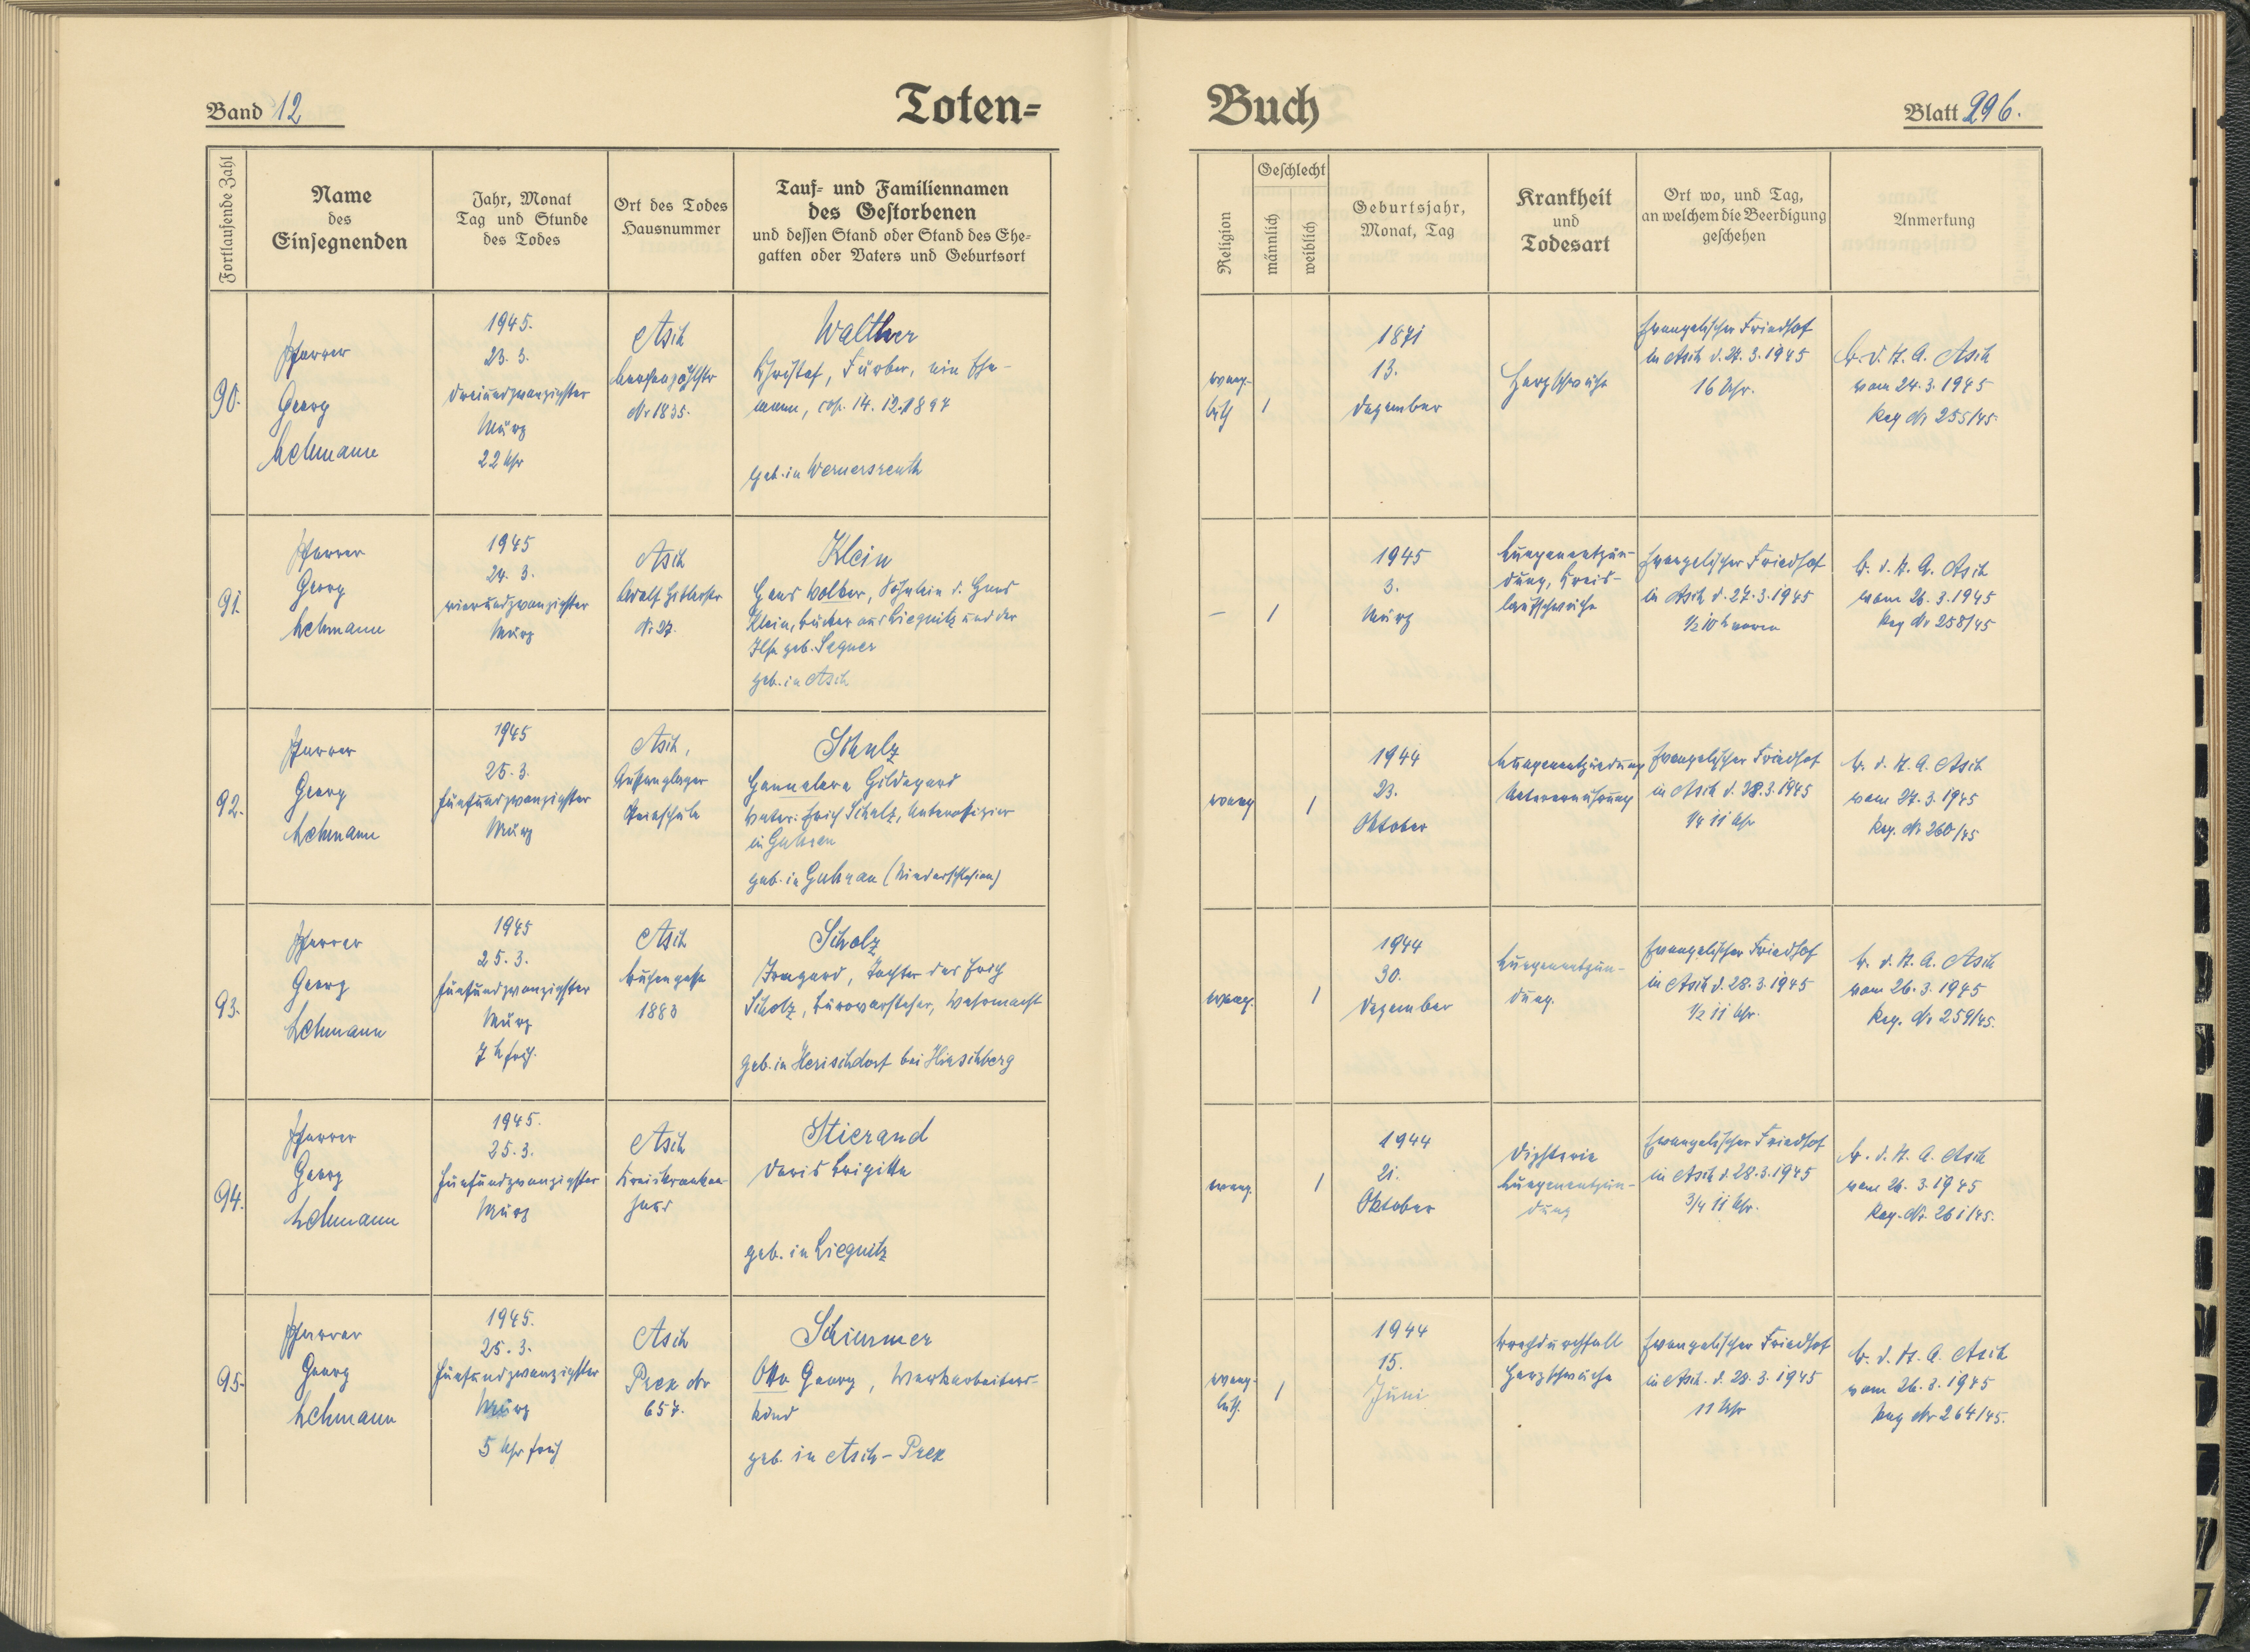 Band 12
Toten=
Buch
Blatt 296.
Fortlaufende Zahl
Name
des
Einsegnenden
Jahr, Monat
Tag und Stunde
des Todes
Ort des Todes
Hausnummer
Tauf= und Familiennamen
des Gestorbenen
und dessen Stand oder Stand des Ehe=
gatten oder Vaters und Geburtsort
Religion
Geschlecht
männlich
weiblich
Geburtsjahr,
Monat, Tag
Krankheit
und
Todesart
Ort wo, und Tag,
an welchem die Beerdigung
geschehen
Anmerkung
90.
Pfarrer
Georg
Lehmann
1945.
23. 3.
dreiundzwanzigster
März
22 Uhr
Asch
Nr 1835.
Walther
Christof, Färber, ein Ehe-
mann, cop. 14. 12. 1897
geb. in Wernersreuth
evang.
luth
1
1871
13.
Dezember
Herzschwäche
Evangelischer Friedhof
in Asch d. 27. 3. 1945
16 Uhr.
B. d. St. A. Asch
vom 24. 3. 1945
Reg Nr 255/45.
91.
Pfarrer
Georg
Lehmann
1945
24. 3.
vierundzwanzigster
März
Asch
Adolf Hitlerstr
Nr 27.
Klein
Hans Volker, Söhnlein d. Hans
Klein, Bäcker aus Liegnitz und der
Ilse geb. Segner
geb. in Asch
–
1
1945
3.
März
Lungenentzün-
dung, Kreis-
laufschwäche
Evangelischer Friedhof
in Asch d. 27. 3. 1945
1/2 10 h vorm
B. d. St. A. Asch
vom 26. 3. 1945
Reg Nr 258/45
92.
Pfarrer
Georg
Lehmann
1945
25. 3.
fünfundzwanzigster
März
Asch,
Auffanglager
Steinschule
Schulz
Hannelore Hildegard
Vater: Erich Schulz, Unteroffizier
in
geb. in Guhrau (Niederschlesien)
evang
1
1944
23.
Oktober
Lungenentzündung
Unterernährung
Evangelischer Friedhof
in Asch d. 28. 3. 1945
1/4 11 Uhr
B. d. St. A. Asch
vom 27. 3. 1945
Reg. Nr 260/45
93.
Pfarrer
Georg
Lehmann
1945
25. 3.
fünfundzwanzigster
März
7 h früh.
Asch
1883
Scholz
Irmgard, Tochter des Erich
Scholz, Bürovorsteher, Wehrmacht
geb. in Herischdorf bei Hirschberg
evang.
1
1944
30.
Dezember
Lungenentzün-
dung.
Evangelischer Friedhof
in Asch d. 28. 3. 1945
1/2 11 Uhr.
B. d. St. A. Asch
vom 26. 3. 1945
Reg. Nr 259/45.
94.
Pfarrer
Georg
Lehmann
1945.
25. 3.
fünfundzwanzigster
März
Asch
Kreiskranken-
haus
Stierand
Doris Brigitte
geb. in Liegnitz
evang.
1
1944
21.
Oktober
Diphterie
Lungenentzün-
dung
Evangelischer Friedhof
in Asch d. 28. 3. 1945
3/4 11 Uhr.
B. d. St. A. Asch
vom 3. 1945
Reg. Nr. 261/45.
95.
Pfarrer
Georg
Lehmann
1945.
25. 3.
fünfundzwanzigster
März
5 Uhr früh
Asch
Prex Nr
657.
Schirmer
Otto Georg, Werkarbeiters-
kind
geb. in Asch – Prex
evang.
luth.
1
1944
15.
Juni
Brechdurchfall
Herzschwäche
Evangelischer Friedhof
in Asch. d. 28. 3. 1945
11 Uhr
B. d. St. A. Asch
vom 26. 3. 1945
Reg Nr 264/45.